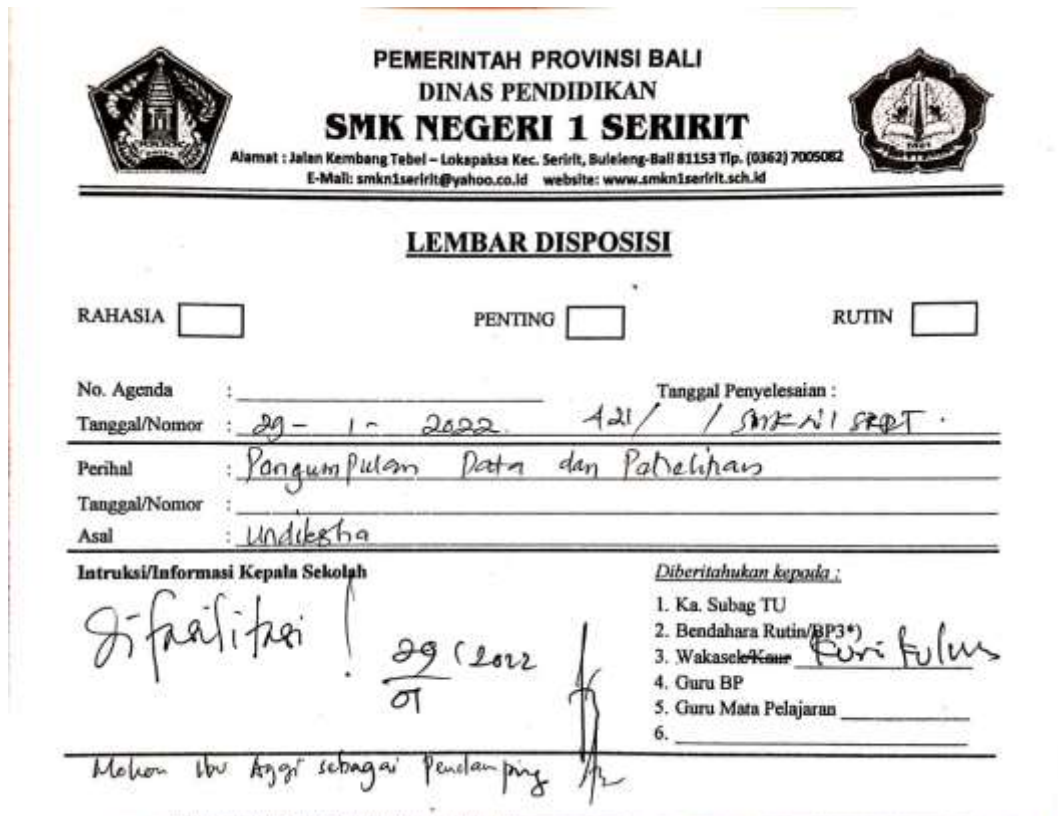 PEMERINTAH PROVINSI BALI
DINAS PENDIDIKAN
SMK NEGERI 1 SERIRIT
Alamat : Jalan Kembang Tebel – Lokapaksa Kec. Seririt, Buleleng-Bali 81153 Tlp. (0362) 7005082
E-Mail: smkn1seririt@yahoo.co.id website: www.smkn1seririt.sch.id
LEMBAR DISPOSISI
RAHASIA PENTING RUTIN
No. Agenda : Tanggal Penyelesaian :
Tanggal/Nomor : 29 - 1 - 2022 421/ / SMK N1 SRRT .
Perihal : Pengumpulan Data dan
Tanggal/Nomor :
Asal : Undiksha
Intruksi/Informasi Kepala Sekolah
Difasilitasi !
29/2022
01
Diberitahukan kepada :
1. Ka. Subag TU
2. Bendahara Rutin/BP3*)
3. Wakasek/Kaur Kurikulum
4. Guru BP
5. Guru Mata Pelajaran
6.
Mohon Ibu Aggi sebagai Pendamping